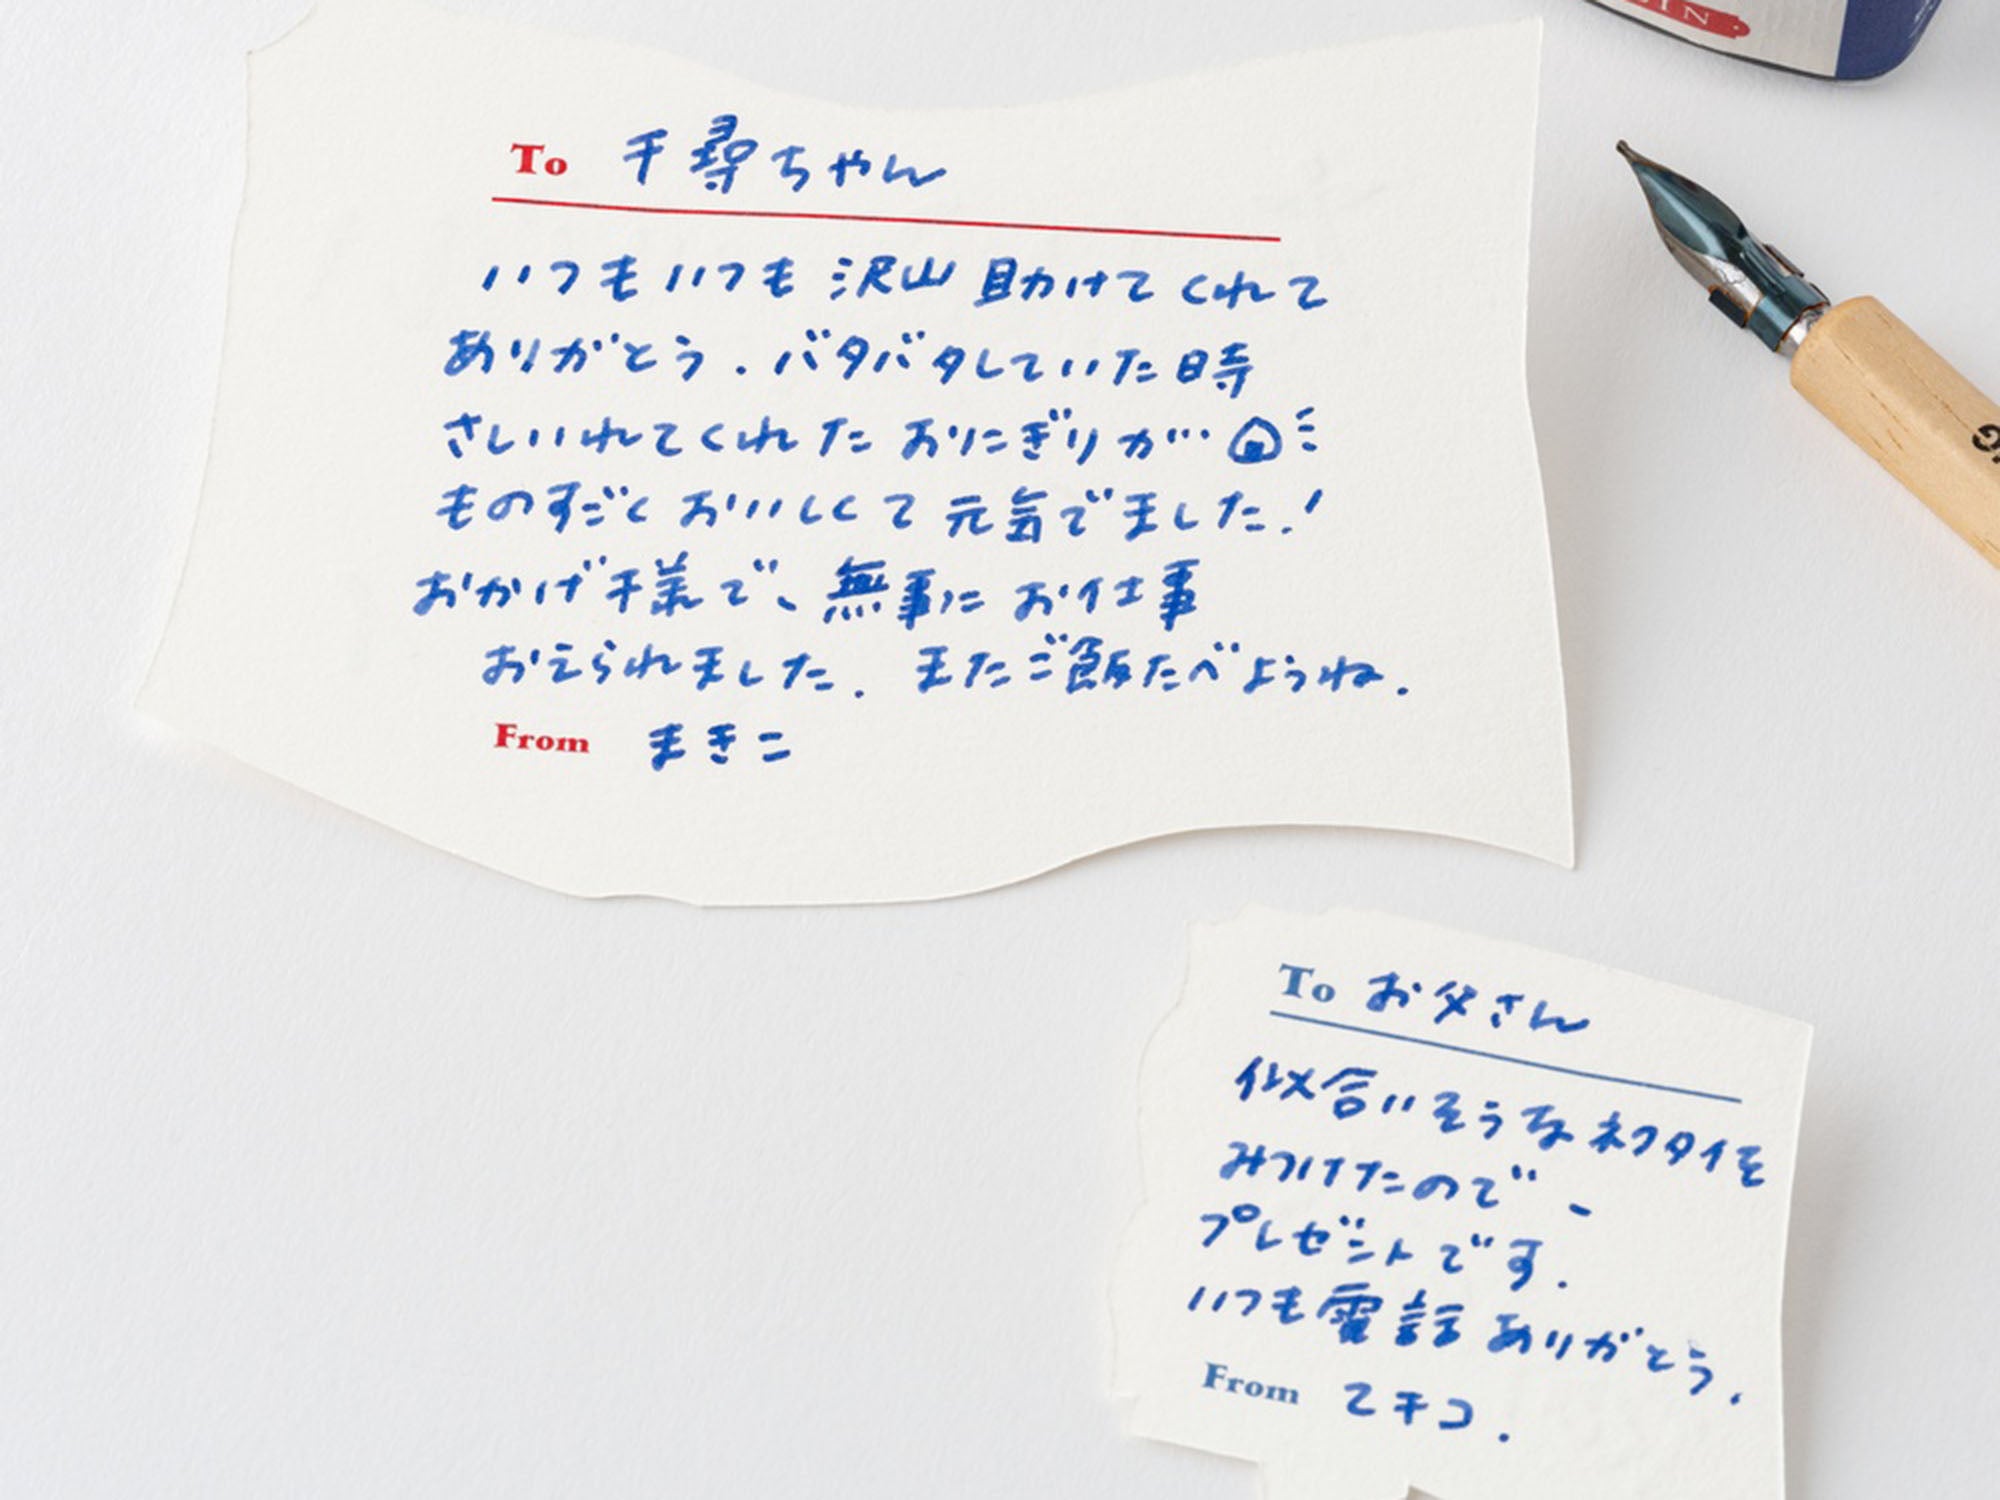 To 千尋ちゃん
いつもいつも 沢山 助けてくれて
ありがとう.バタバタしていた時
さしいれてくれた おりにぎりが…
ものすごく おいしくて 元気でました!
おかげ様で、無事に お仕事
おえられました. またご飯たべようね.
From まきこ
To お父さん
似合いそうな ネクタイを
みつけたので -
プレゼント です.
いつも 電話 ありがとう.
From